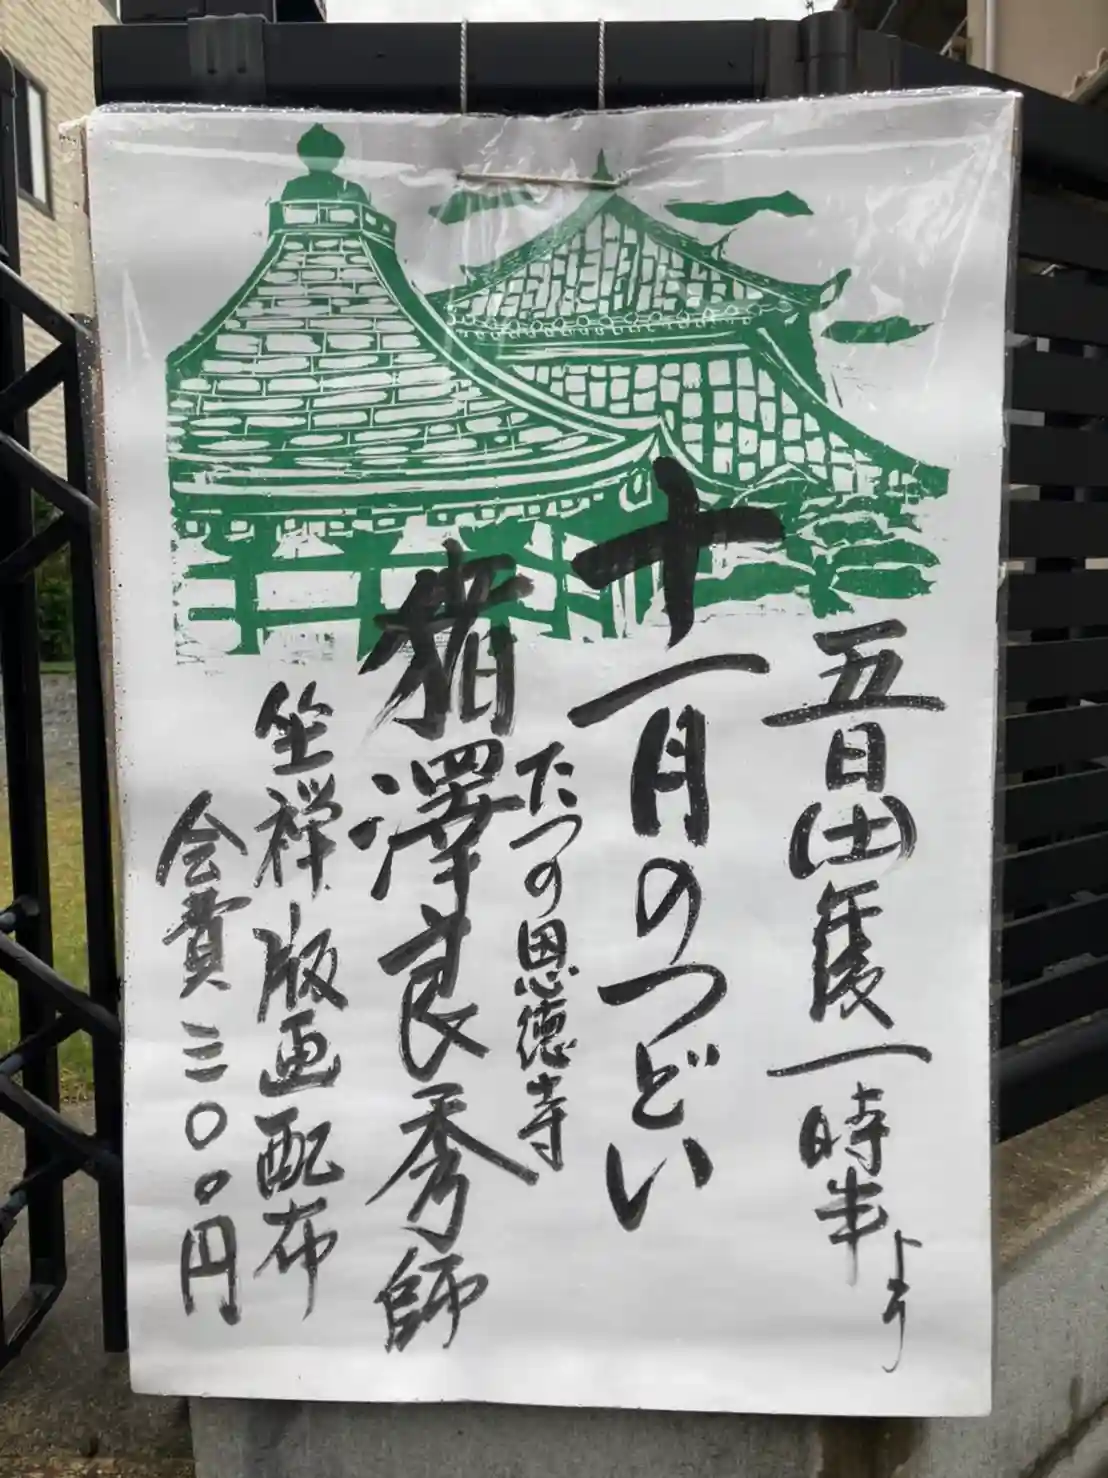 五日(土)午後一時半より
十一月のつどい
たつの恩徳寺
猪澤良秀師
坐禅 版画配布
会費三〇〇円